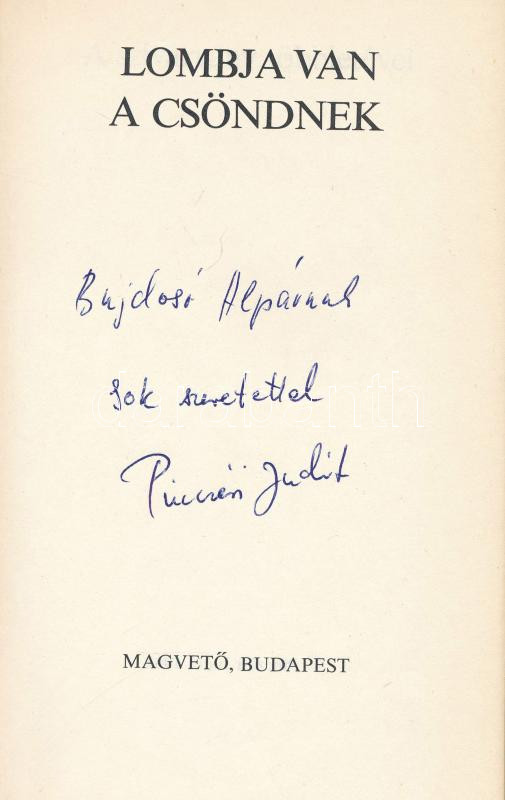 LOMBJA VAN
A CSÖNDNEK
Bujdosó Alpárnak
sok szeretettel
Pinczési Judit
MAGVETŐ, BUDAPEST